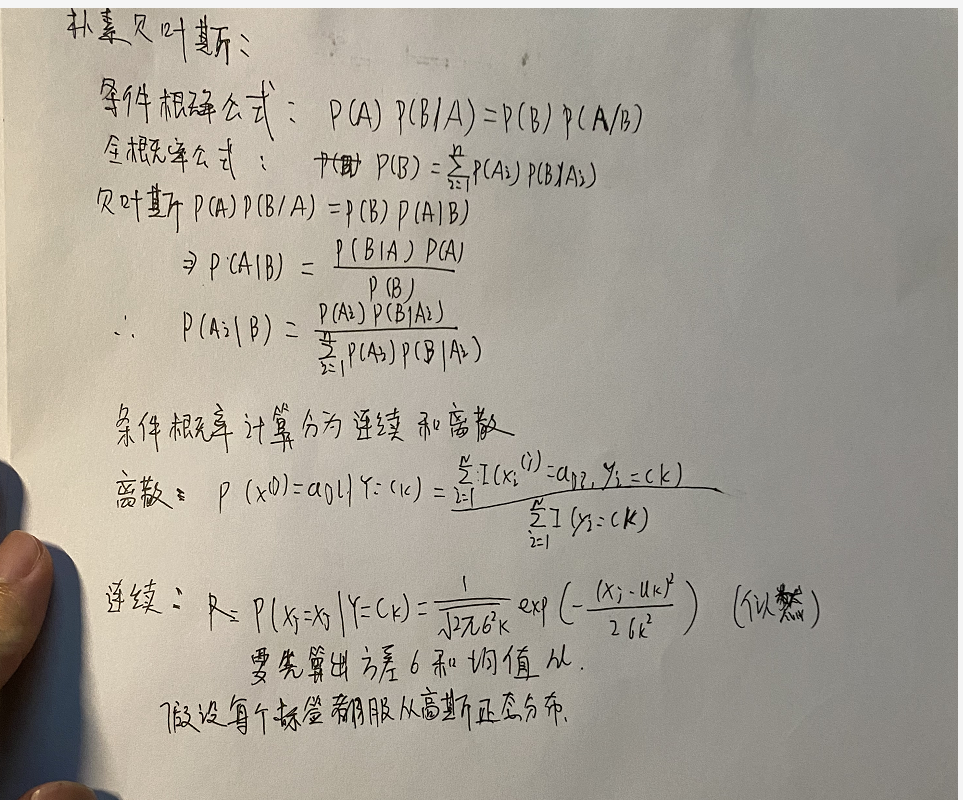 朴素贝叶斯：
条件概率公式： P(A) P(B|A) = P(B) P(A|B)
全概率公式： P(B) = ∑_{i=1}^{n} P(Ai) P(B|Ai)
贝叶斯 P(A) P(B|A) = P(B) P(A|B)
⇒ P(A|B) = \frac{P(B|A) P(A)}{P(B)}
∴ P(Ai|B) = \frac{P(Ai) P(B|Ai)}{∑_{i=1}^{n} P(Ai) P(B|Ai)}
条件概率计算分为连续和离散
离散： P(x^{(j)}=ajl|Y=Ck) = \frac{∑_{i=1}^{N} I(xi^{(j)}=ajl, yi=Ck)}{∑_{i=1}^{N} I(yi=Ck)}
连续： P(Xj=xj|Y=Ck) = \frac{1}{\sqrt{2πσ²k}} exp(-\frac{(xj-uk)²}{2σk²}) (似然)
要先算出方差σ和均值u.
假设每个标签都服从高斯正态分布.